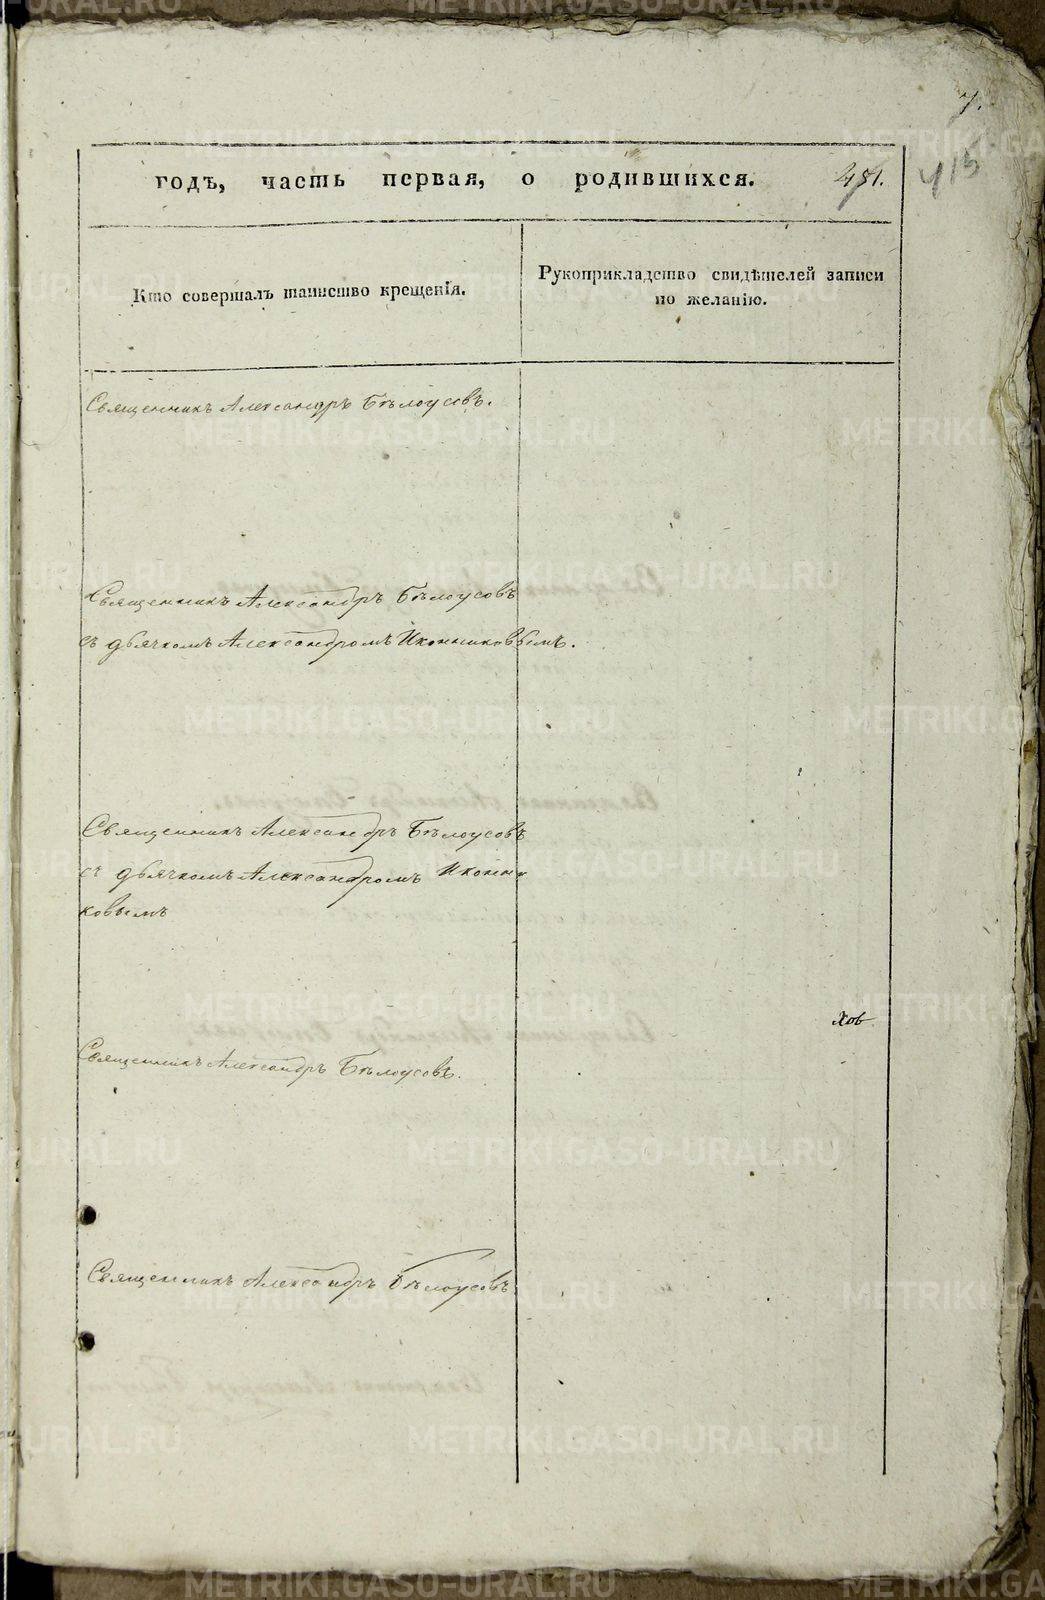 7.
годъ, часть первая, о родившихся. 451.
413
Кто совершалъ таинство крещенія.
Рукоприкладство свидѣтелей записи
по желанію.
Священникъ Александръ Бѣлоусовъ.
Священникъ Александръ Бѣлоусовъ
съ дьячкомъ Александромъ Иконниковымъ.
Священникъ Александръ Бѣлоусовъ
съ дьячкомъ Александромъ Иконни
ковымъ
Священникъ Александръ Бѣлоусовъ.
Священникъ Александръ Бѣлоусовъ
METRIKI.GASO-URAL.RU